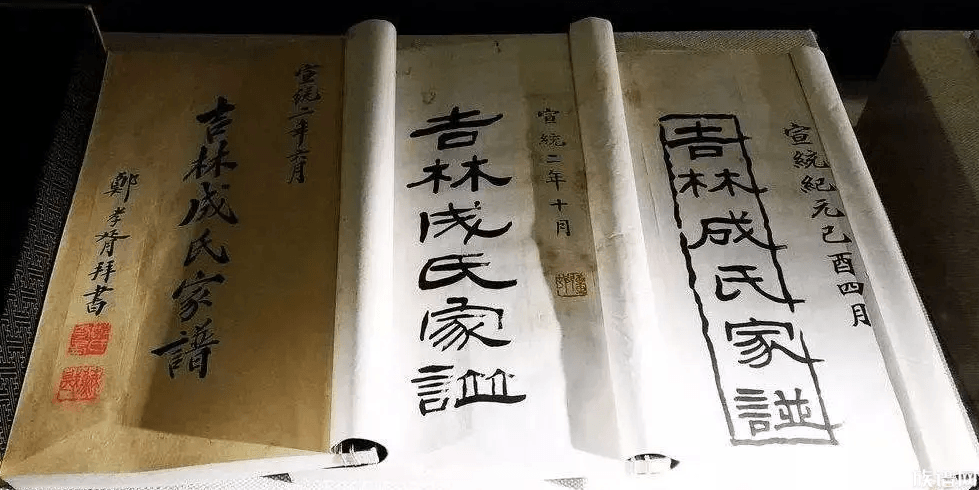 宣統紀元己酉四月
吉林成氏家諩
宣統二年十月
吉林成氏家諩
宣統二年六月
吉林成氏家譜
鄭孝胥拜書